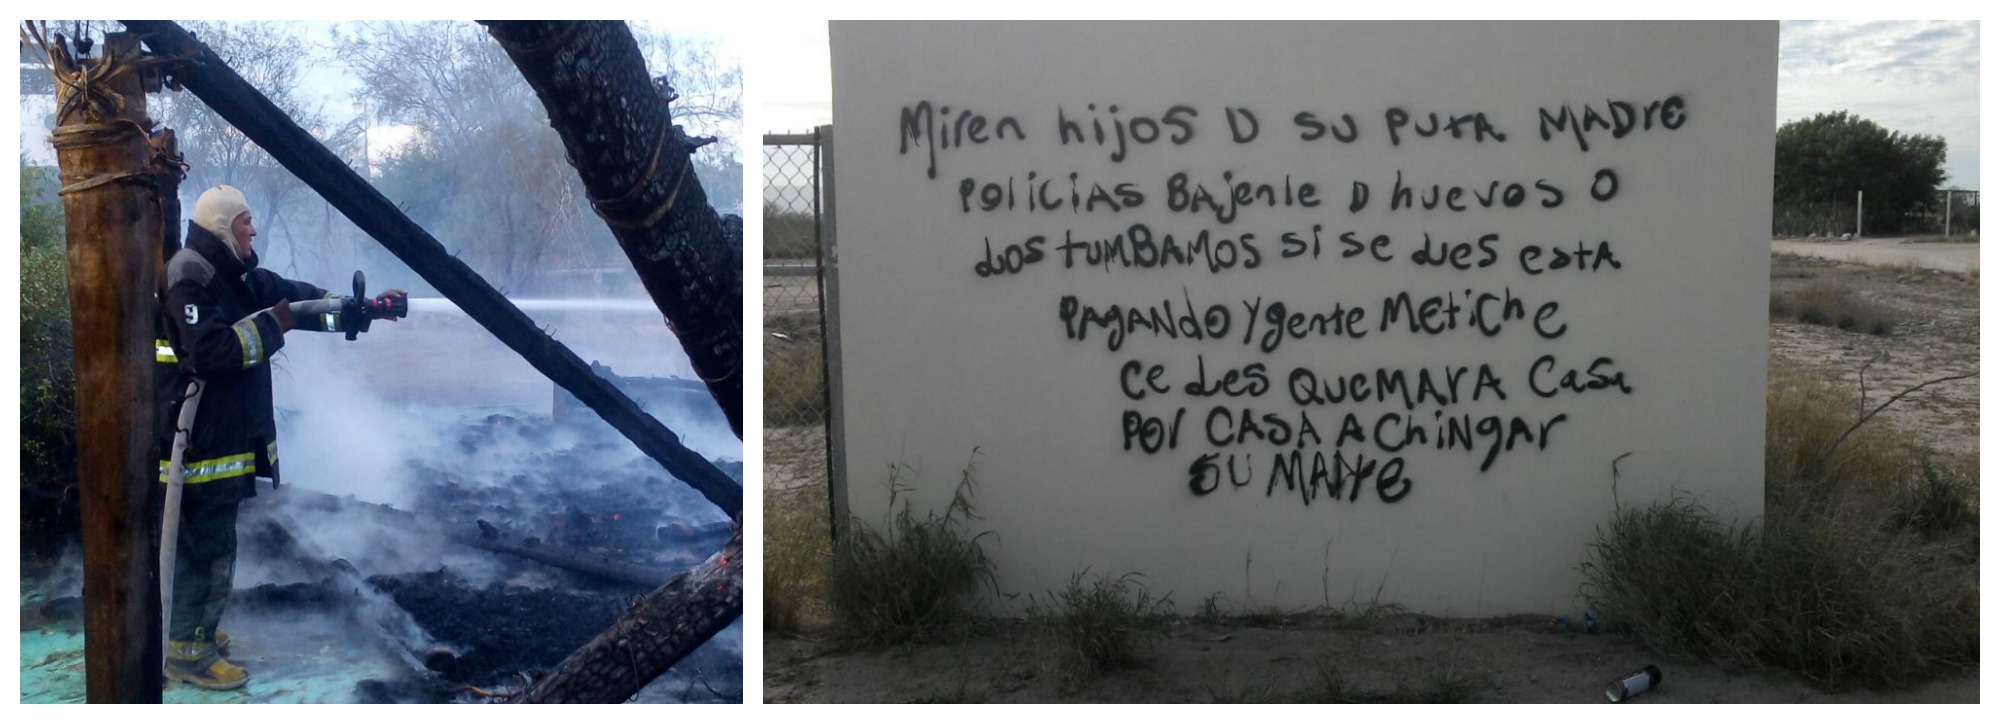 9
Miren hijos D su PutA MADrE
POliciAS BAjenle D huevos O
LOS tUMBAMOS Si Se Les estA
PAgANdO Y gente Metiche
Ce Les QueMArA CaSa
POr CASA A ChiNgAr
SU MADre